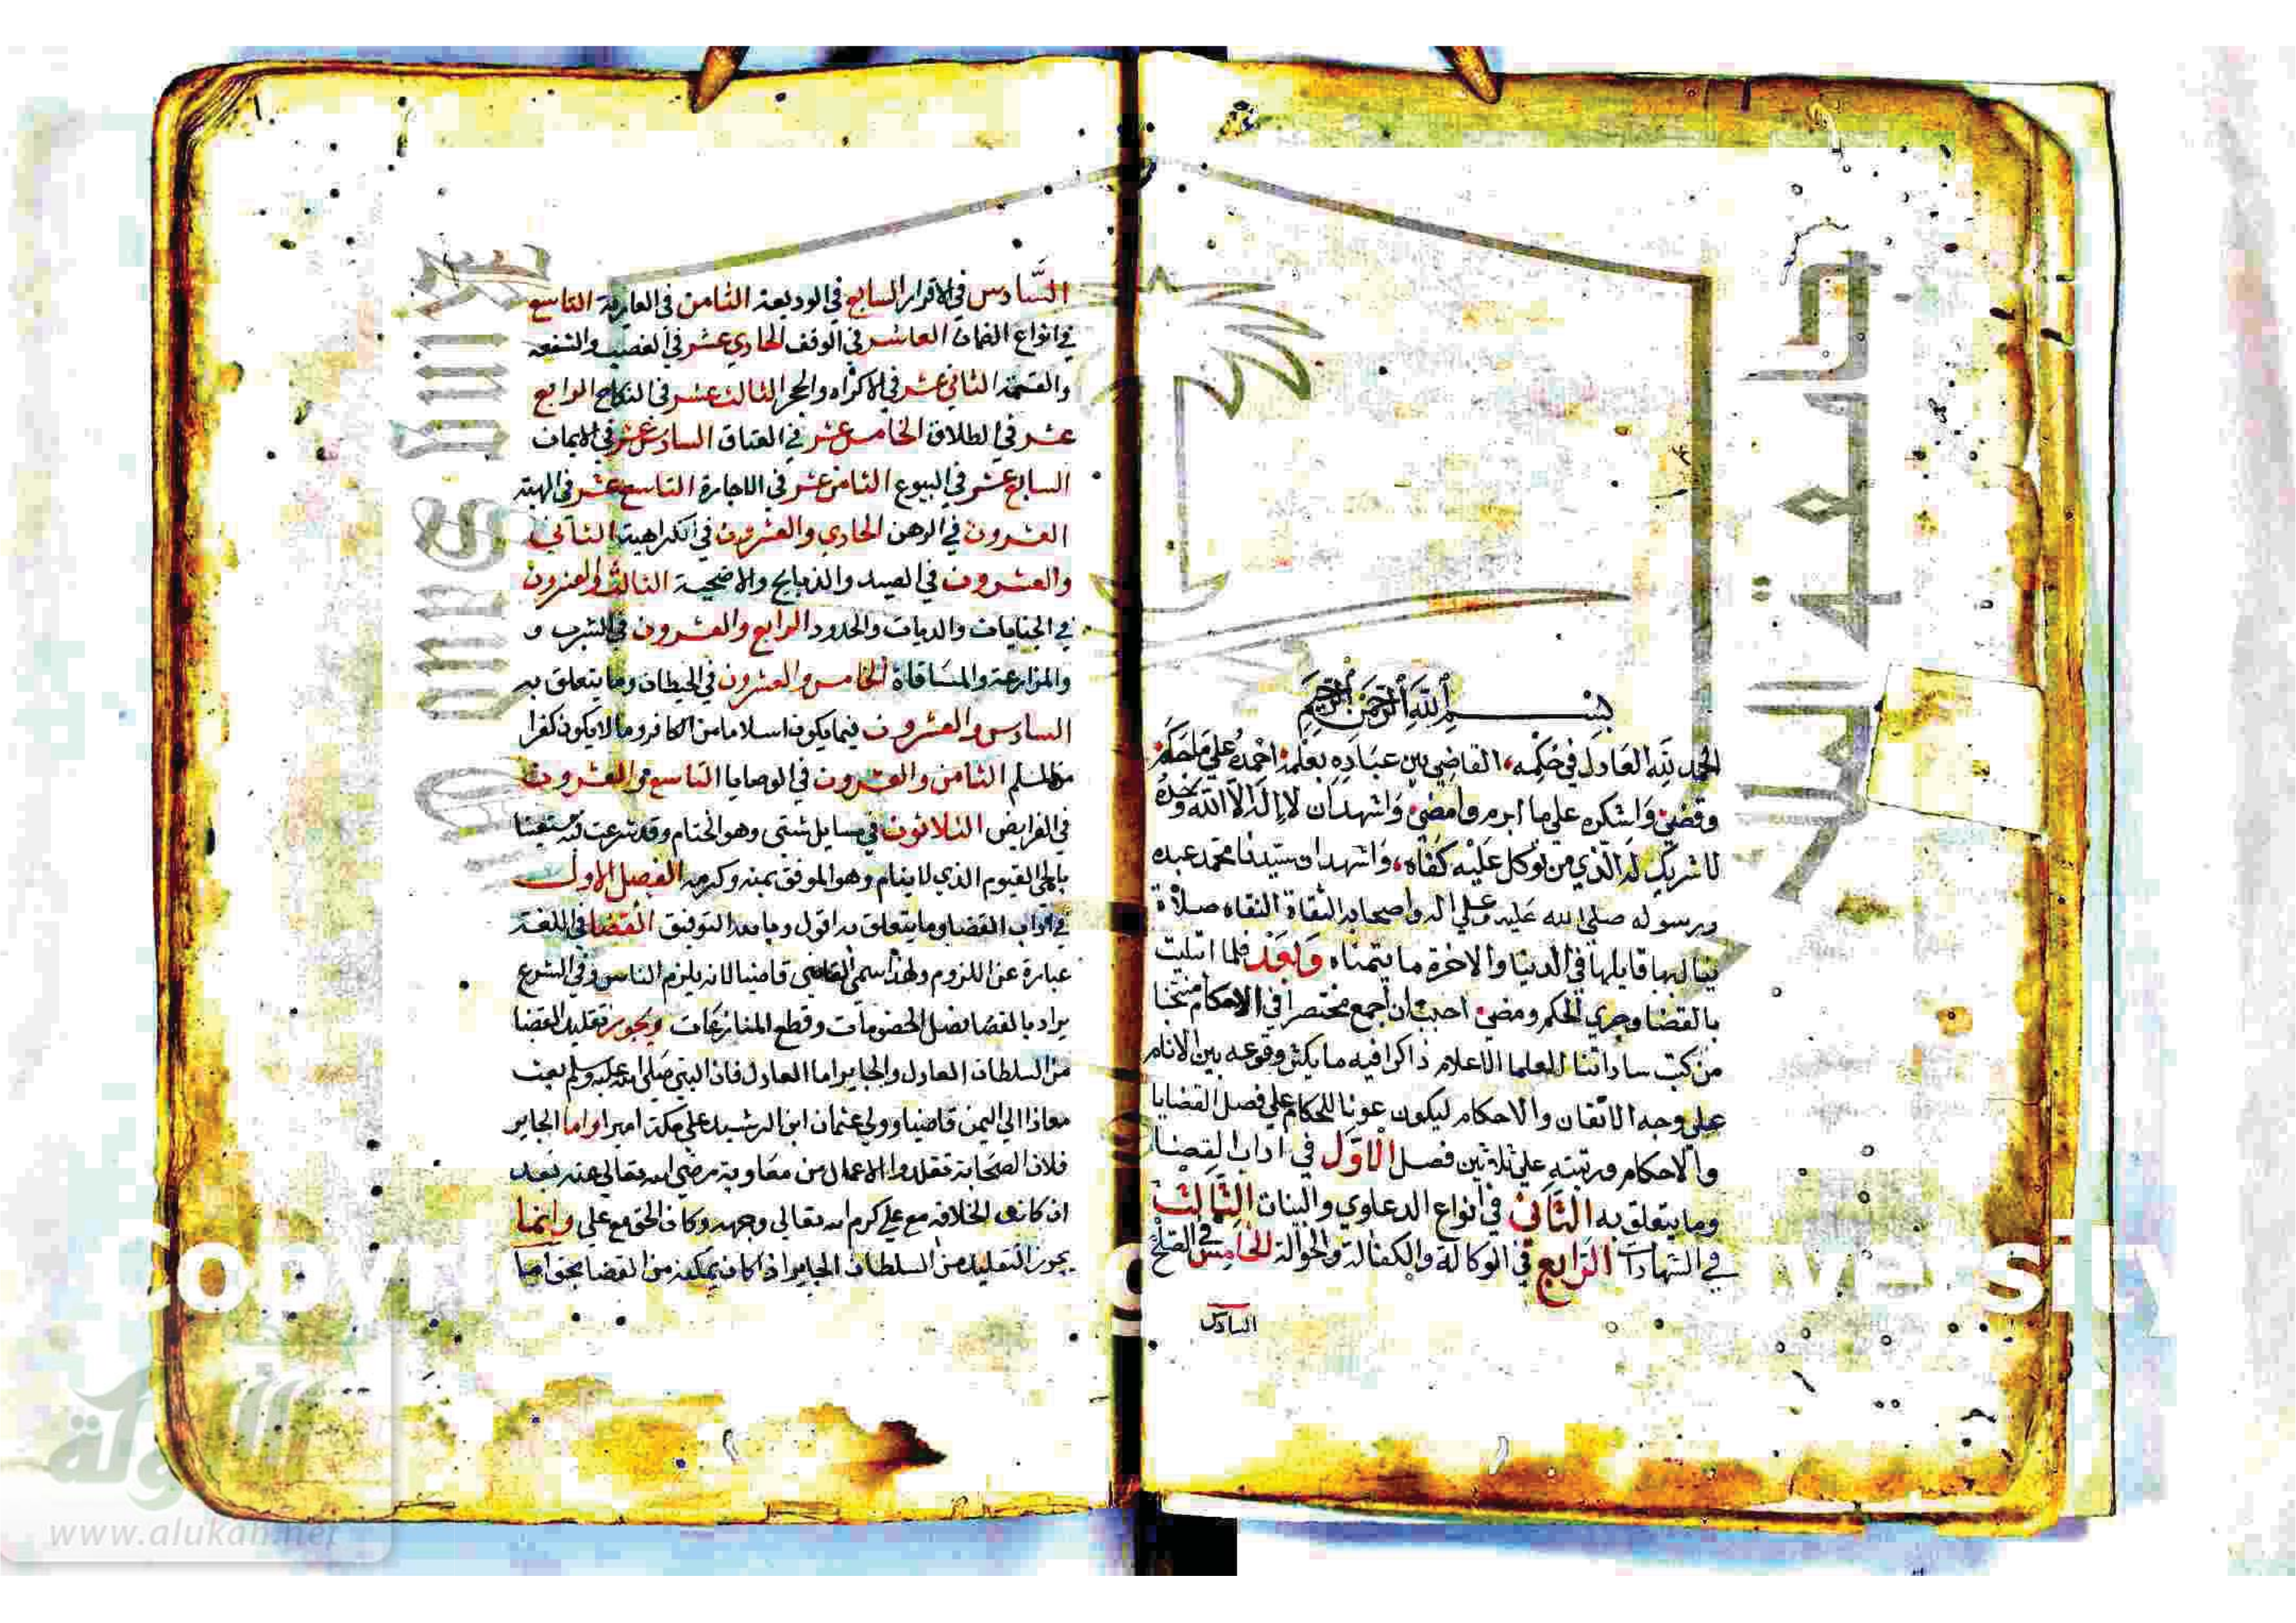 بسم الله الرحمن الرحيم
الحمد لله العادل في حكمه القاضي بين عباده بعلمه احمده على ما حكم
وقضى واشكره على ما ابرم وامضى واشهد ان لا اله الا الله وحده
لا شريك له الذي من توكل عليه كفاه واشهد ان سيدنا محمد عبده
ورسوله صلى الله عليه وعلى اله واصحابه الثقاة النقاه صلاة
ينالها قايلها في الدنيا والاخرة ما يتمناه وبعد فلما ابتليت
بالقضا وجري الحكم ومضى احببت ان اجمع مختصرا في الاحكام منتخبا
من كتب ساداتنا العلما الاعلام ذاكرا فيه ما يكثر وقوعه بين الانام
على وجه الاتقان والاحكام ليكون عونا للحكام علي فصل القضايا
والاحكام ورتبته علي ثلاثين فصل الاول في اداب القضا
وما يتعلق به الثاني في انواع الدعاوي والبينات الثالث
في الشهادات الرابع في الوكالة والكفالة والحوالة الخامس في الصلح
السادس
السادس في الاقرار السابع في الوديعة الثامن في العارية التاسع
في انواع الضمان العاشر في الوقف الحادي عشر في الغصب والشفعه
والقسمة الثاني عشر في الاكراه والحجر الثالث عشر في النكاح الرابع
عشر في الطلاق الخامس عشر في العتاق السادس عشر في الايمان
السابع عشر في البيوع الثامن عشر في الاجارة التاسع عشر في الهبة
العشرون في الرهن الحادي والعشرون في الكراهية الثاني
والعشرون في الصيد والذبايح والاضحية الثالث والعشرون
في الجنايات والديات والحدود الرابع والعشرون في الشرب و
والمزارعة والمساقاة الخامس والعشرون في الحيطان وما يتعلق به
السادس والعشرون فيما يكون اسلاما من الكافر وما لا يكون كفرا
من المسلم الثامن والعشرون في الوصايا التاسع والعشرون
في الفرايض الثلاثون في مسايل شتى وهو الختام وقد شرعت فيه مستعينا
بالحي القيوم الذي لا ينام وهو الموفق بمنه وكرمه الفصل الاول
في اداب القضا وما يتعلق به اقول وبالله التوفيق القضا في اللغة
عبارة عن اللزوم ولهذا سمي القاضي قاضيا لانه يلزم الناس وفي الشرع
يراد بالقضا فصل الخصومات وقطع المنازعات ويجوز تقليد القضا
من السلطان العادل والجاير اما العادل فان النبي صلى الله عليه وسلم بعث
معاذا الى اليمن قاضيا وولي عثمان ابن الرشيد علي مكة اميرا واما الجاير
فلان الصحابة تقلدوا الاعمال من معاوية رضي الله تعالى عنه بعد
ان كانت الخلافه مع علي كرم الله تعالى وجهه وكان الحق مع علي وانما
يجوز التقليد من السلطان الجاير اذا كان يمكنه من القضا بحق اما
جامعة الملك سعود
www.alukah.net
الألوكة